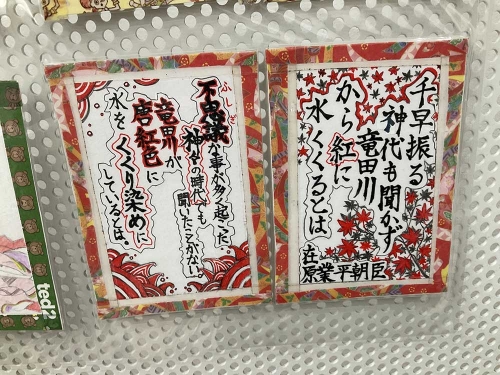 千早振る
神代も聞かず
竜田川
から紅に
水くくるとは
在原業平朝臣
不思議な事が多く起こった
ふしぎ
神代の時代でも
聞いたことがない。
竜田川が
唐紅色に
水をくくり染めに
しているとは。
ted2